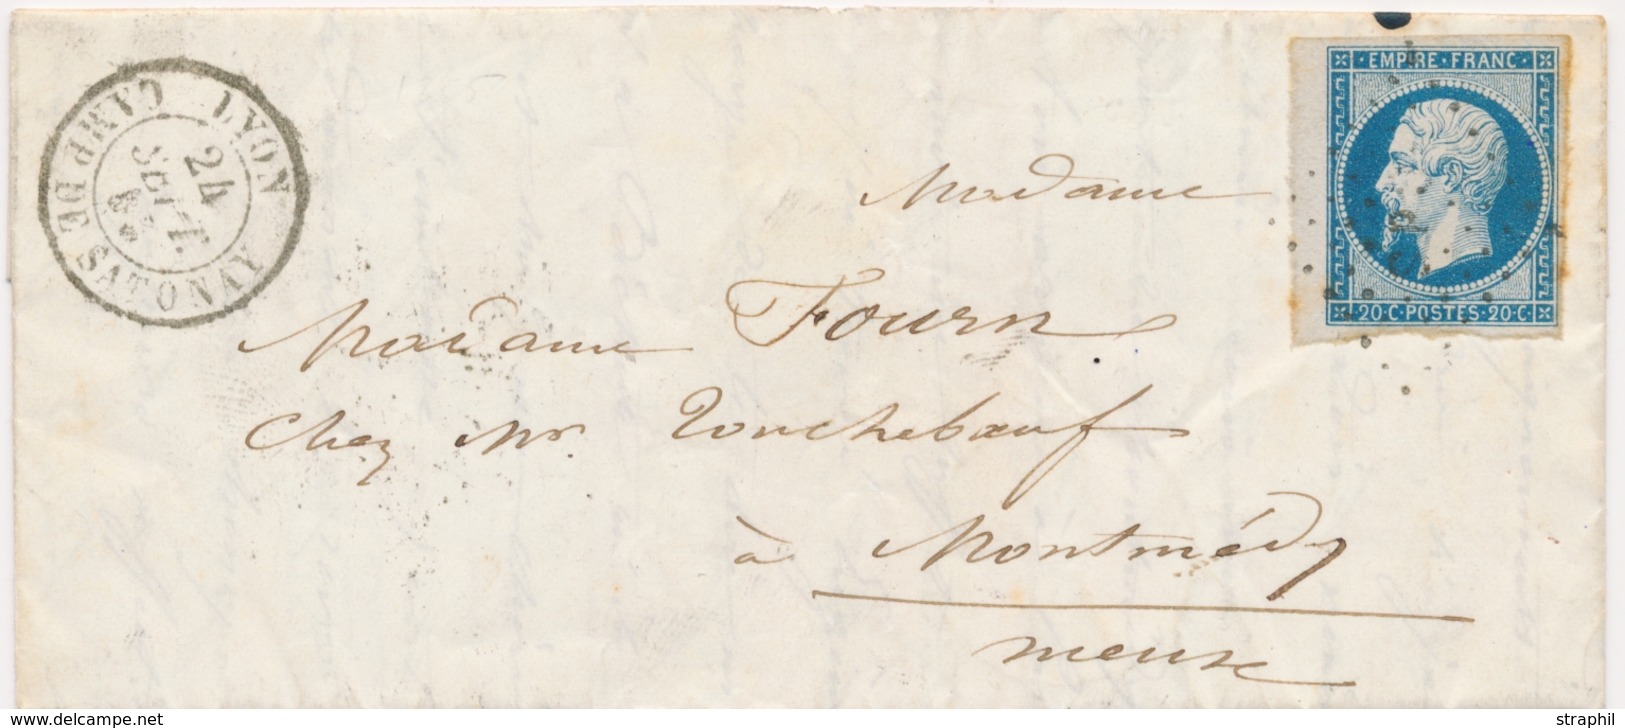 LYON
CAMP DE SATONAY
24
SEPT.
EMPIRE·FRANC·
20·C·POSTES·20·C·
Madame
Madame Fourn
chez Mr Tonchebœuf
à Montmédy
meuse
www.delcampe.net
straphil